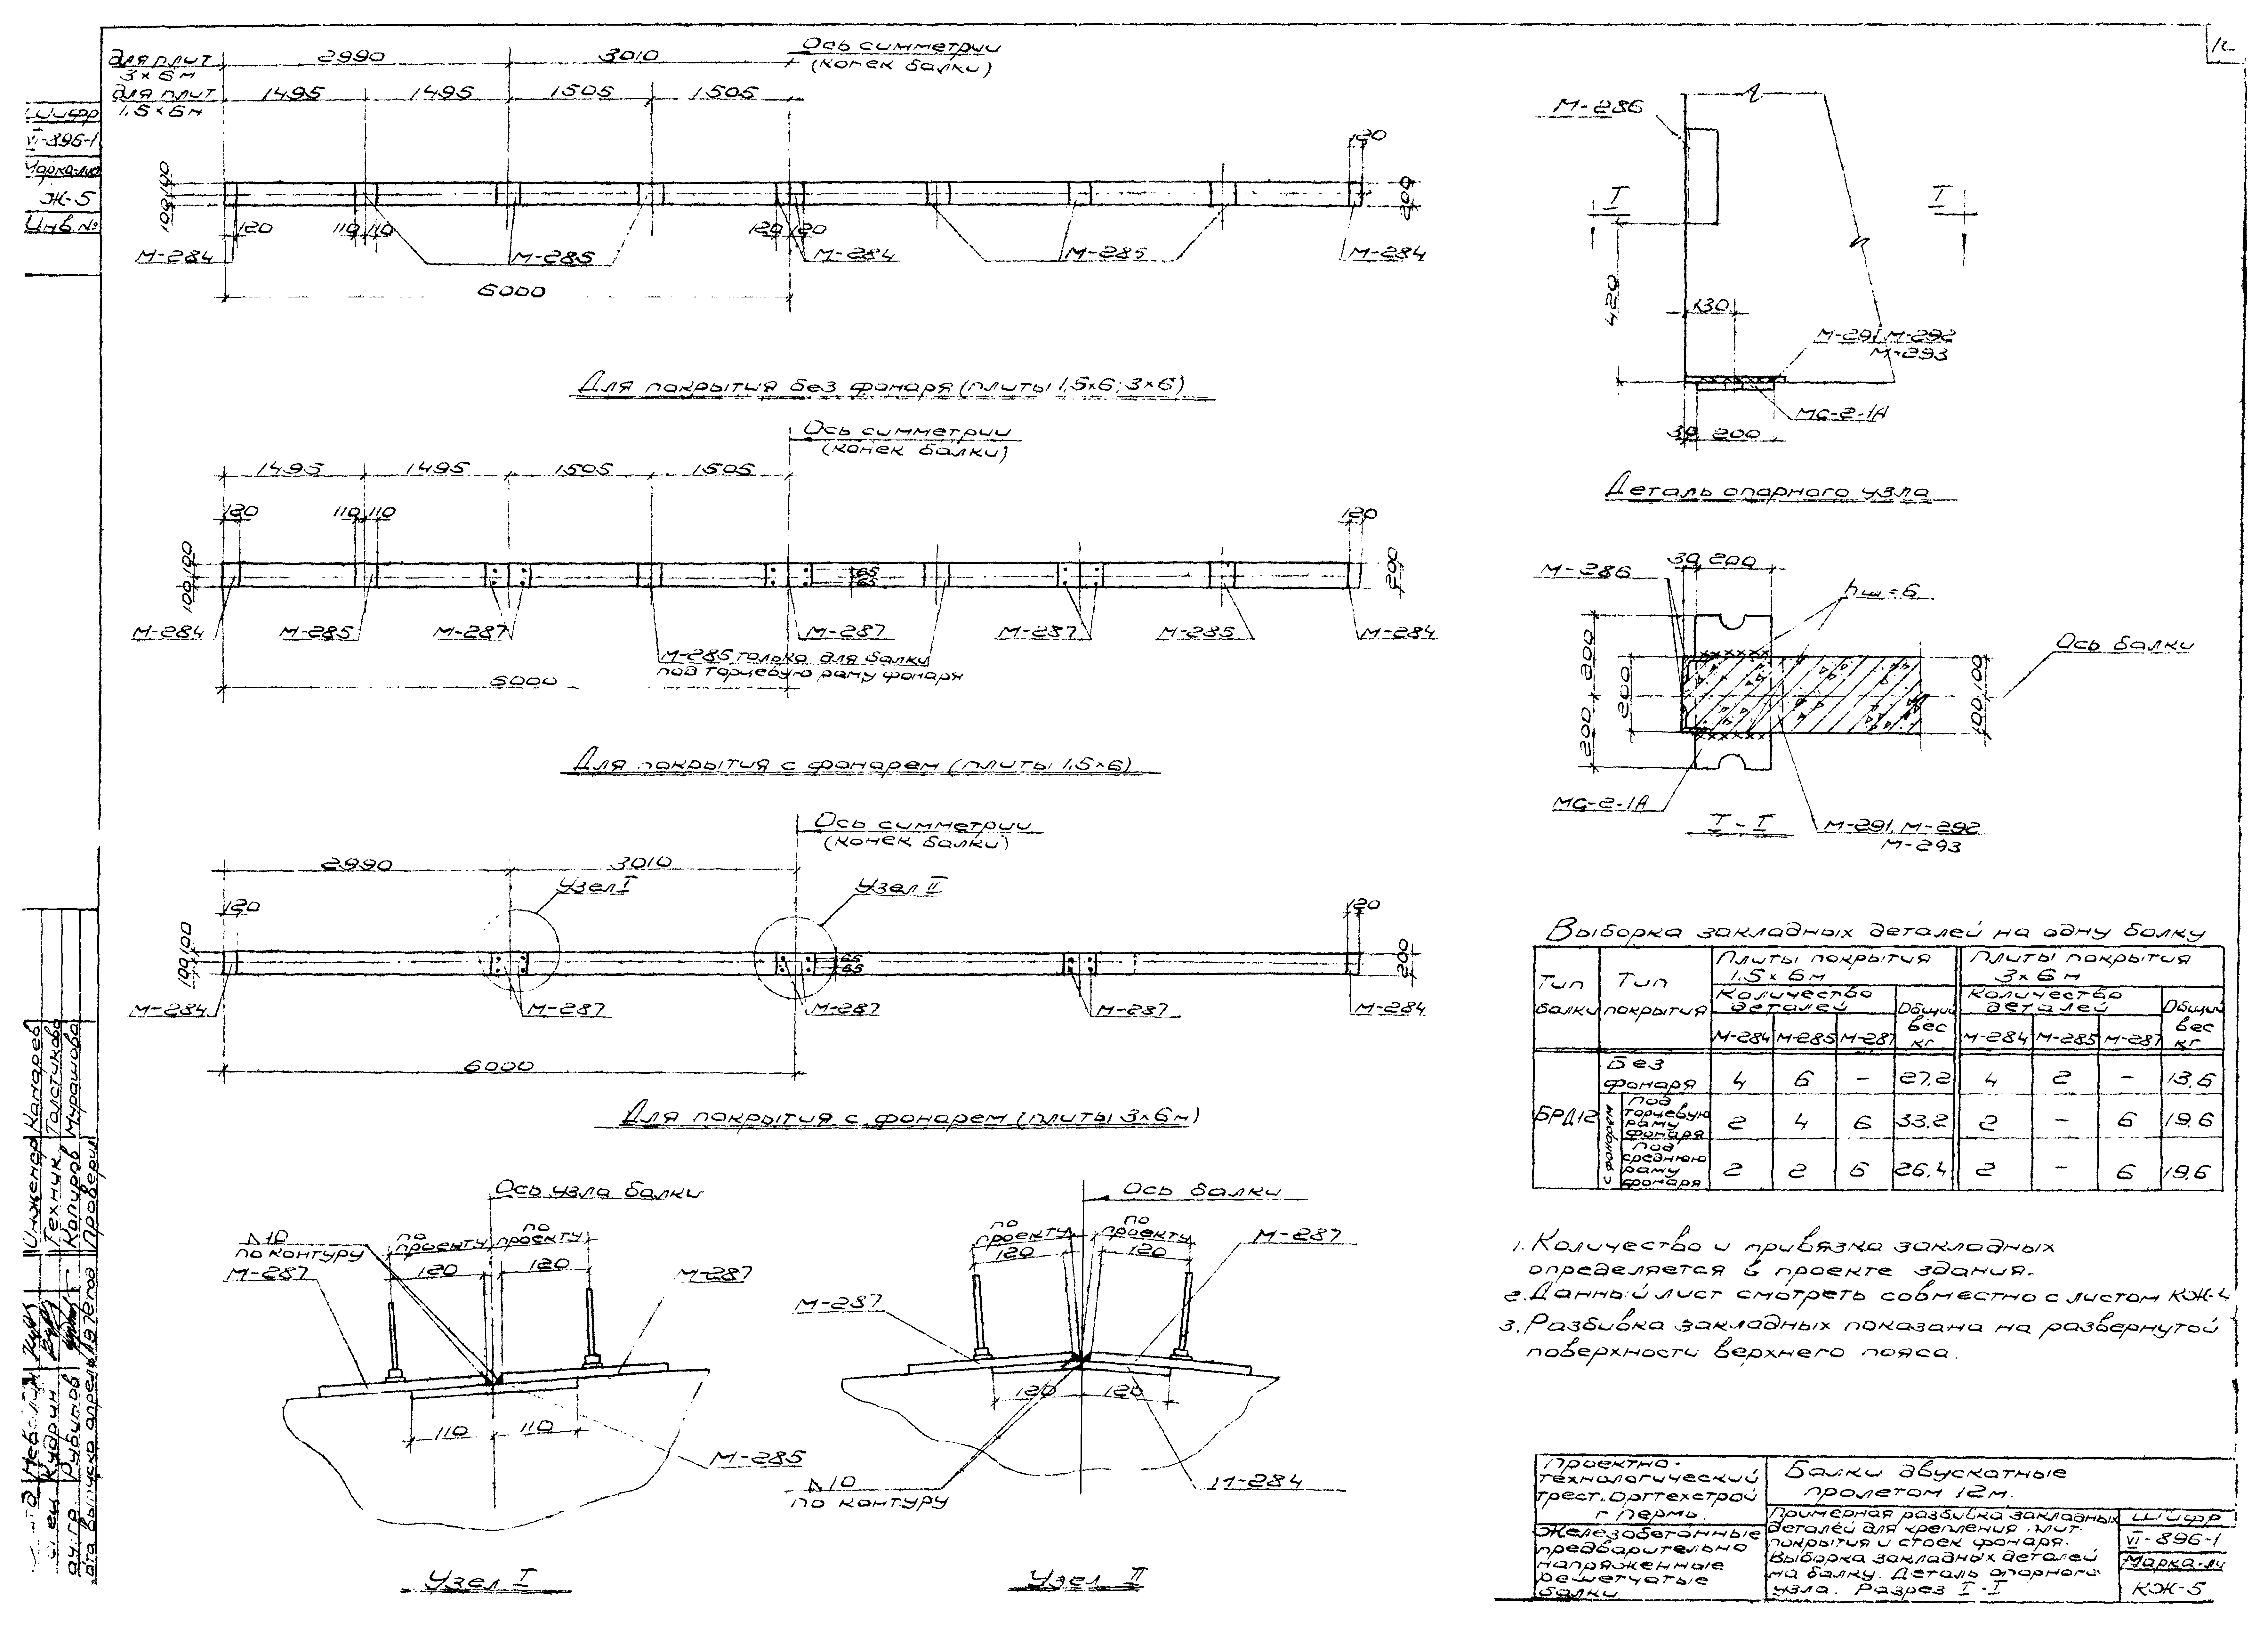 для плит
3×6 м
2990
3010
Ось симметрии
(конек балки)
для плит
1,5×6 м
1495
1495
1505
1505
Шифр
VI-896-1
Ж-5
Инв. №
100
100
120
110
110
120
120
120
200
М-284
М-285
М-284
М-285
М-284
6000
Для покрытия без фонаря (плиты 1,5×6; 3×6)
Ось симметрии
(конек балки)
1495
1495
1505
1505
120
110
110
120
100
100
65
65
200
М-284
М-285
М-287
М-287
М-287
М-285
М-284
М-285 только для балки
под торцевую раму фонаря
6000
Для покрытия с фонарем (плиты 1,5×6)
Ось симметрии
(конек балки)
2990
3010
Узел I
Узел II
120
120
100
100
65
65
200
М-284
М-287
М-287
М-287
М-284
6000
Для покрытия с фонарем (плиты 3×6м)
Ось узла балки
по
проекту
по
проекту
120
120
10
по контуру
М-287
М-287
110
110
М-285
Узел I
Ось балки
по
проекту
по
проекту
120
120
М-287
М-287
120
120
10
по контуру
М-284
Узел II
М-286
I
I
420
130
М-291, М-292
М-293
МС-2-1А
30
200
Деталь опорного узла
М-286
30
200
hш=6
200
200
200
100
100
Ось балки
МС-2-1А
I - I
М-291, М-292
М-293
Выборка закладных деталей на одну балку
Тип
балки
Тип
покрытия
Плиты покрытия
1,5×6м
Плиты покрытия
3×6 м
Количество
деталей
Общий
вес
кг
Количество
деталей
Общий
вес
кг
М-284 М-285 М-287 М-284 М-285 М-287
БРД12
Без
фонаря
4 6 - 27,2 4 2 - 13,6
с фонарем
под
торцевую
раму
фонаря
2 4 6 33,2 2 - 6 19,6
под
среднюю
раму
фонаря
2 2 6 26,4 2 - 6 19,6
1. Количество и привязка закладных
определяется в проекте здания.
2. Данный лист смотреть совместно с листом КЖ-4
3. Разбивка закладных показана на развернутой
поверхности верхнего пояса.
Проектно-
технологический
трест „Оргтехстрой
г Пермь.
Железобетонные
предварительно
напряженные
решетчатые
балки
Балки двускатные
пролетом 12м.
Примерная разбивка закладных
деталей для крепления плит
покрытия и стоек фонаря.
Выборка закладных деталей
на балку. Деталь опорного
узла. Разрез I-I
Шифр
VI-896-1
КЖ-5
Инженер Канарев
Техник Толстикова
Копиров Мурашова
Проверил
Кудрин
Рубинов